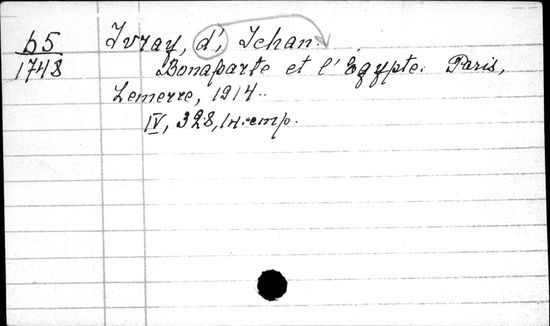 b5
1748
Ivray, d', Jehan.
Bonaparte et l'Egypte. Paris,
Lemerre, 1914.
IV, 328, 1 н.стр.